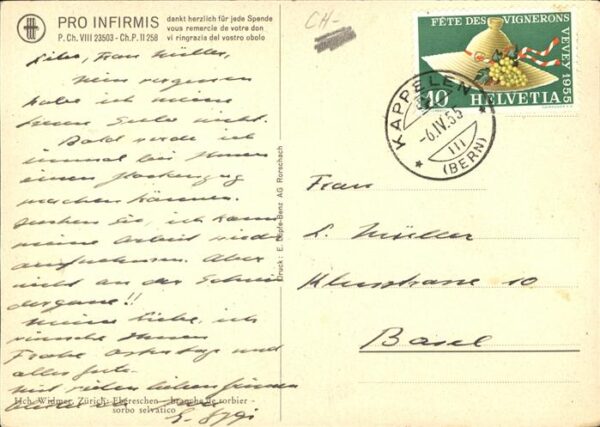 PRO INFIRMIS
P. Ch. VIII 23503 - Ch. P. II 258
dankt herzlich für jede Spende
vous remercie de votre don
vi ringrazia del vostro obolo
CH-
FÊTE DES VIGNERONS
VEVEY 1955
10 HELVETIA
KAPPELEN
-6.IV.55
III
(BERN)
Liebe, Frau Müller,
Nein vergessen
habe ich meine
treue Seele nicht.
Bald werde ich
einmal bei Ihnen
einen
machen können.
ich kann
meine Arbeit wieder
aufnehmen. Aber
nicht an der
!!
Meine Liebe, ich
wünsche Ihnen
Frohe Ostertage und
alles Gute.
Mit lieben
Druck: E. Löpfe-Benz AG Rorschach
Frau
L. Müller
10
Basel
Hch. Widmer, Zürich: Ebereschen - branche de sorbier -
sorbo selvatico